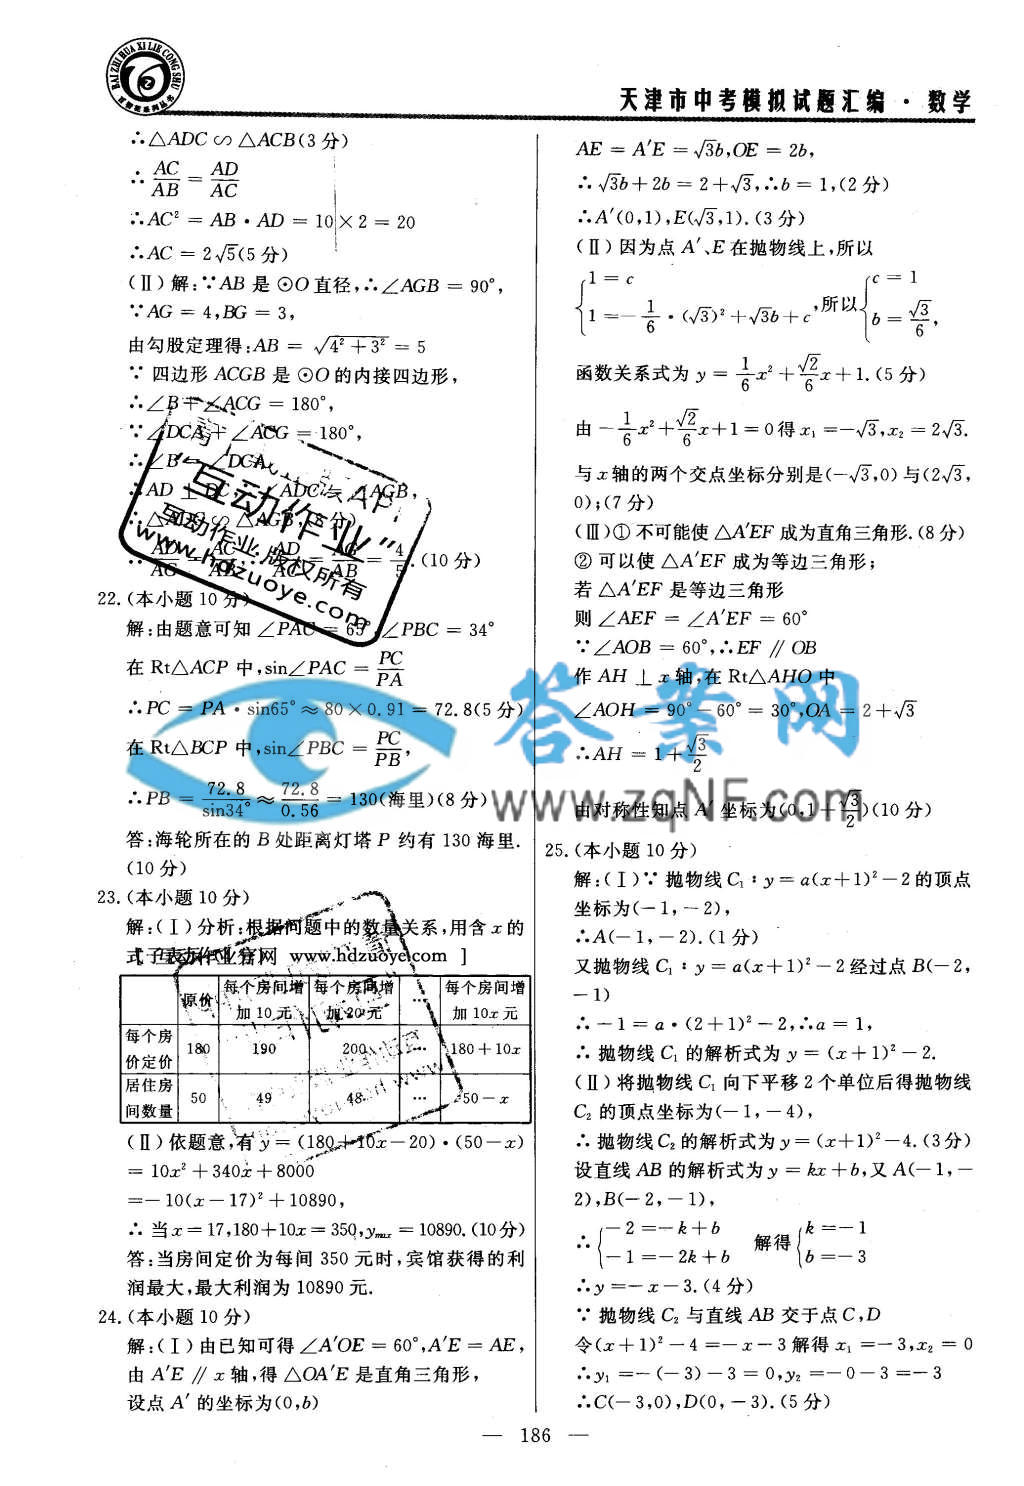 BAI ZHI HUA XI LIE CONG SHU
天津市中考模拟试题汇编·数学
∴△ADC∽△ACB(3分)
∴AC/AB=AD/AC
∴AC²=AB·AD=10×2=20
∴AC=2√5(5分)
(Ⅱ)解:∵AB是⊙O直径,∴∠AGB=90°,
∵AG=4,BG=3,
由勾股定理得:AB=√(4²+3²)=5
∵四边形ACGB是⊙O的内接四边形,
∴∠B+∠ACG=180°,
∵∠DCA+∠ACG=180°,
∴∠B=∠DCA
∴AD⊥DC,∠ADC=∠AGB,
∴△ADC∽△AGB,
∴AD/AG=AC/AB,AD/AC=AG/AB=4/5.(10分)
22.(本小题10分)
解:由题意可知∠PAC=65°,∠PBC=34°
在Rt△ACP中,sin∠PAC=PC/PA
∴PC=PA·sin65°≈80×0.91=72.8(5分)
在Rt△BCP中,sin∠PBC=PC/PB,
∴PB=72.8/sin34°≈72.8/0.56=130(海里)(8分)
答:海轮所在的B处距离灯塔P约有130海里.
(10分)
23.(本小题10分)
解:(Ⅰ)分析:根据问题中的数量关系,用含x的
[互动作业官网 www.hdzuoye.com ]
原价 每个房间增加10元 每个房间增加20元 … 每个房间增加10x元
每个房价定价 180 190 200 … 180+10x
居住房间数量 50 49 48 … 50-x
(Ⅱ)依题意,有y=(180+10x-20)·(50-x)
=10x²+340x+8000
=-10(x-17)²+10890,
∴当x=17,180+10x=350,ymax=10890.(10分)
答:当房间定价为每间350元时,宾馆获得的利
润最大,最大利润为10890元.
24.(本小题10分)
解:(Ⅰ)由已知可得∠A′OE=60°,A′E=AE,
由A′E∥x轴,得△OA′E是直角三角形,
设点A′的坐标为(0,b)
AE=A′E=√3b,OE=2b,
∴√3b+2b=2+√3,∴b=1,(2分)
∴A′(0,1),E(√3,1).(3分)
(Ⅱ)因为点A′、E在抛物线上,所以
{1=c
1=-1/6·(√3)²+√3b+c,所以{c=1
b=√3/6,
函数关系式为y=1/6x²+√2/6x+1.(5分)
由-1/6x²+√2/6x+1=0得x₁=-√3,x₂=2√3.
与x轴的两个交点坐标分别是(-√3,0)与(2√3,
0);(7分)
(Ⅲ)①不可能使△A′EF成为直角三角形.(8分)
②可以使△A′EF成为等边三角形;
若△A′EF是等边三角形
则∠AEF=∠A′EF=60°
∵∠AOB=60°,∴EF∥OB
作AH⊥x轴,在Rt△AHO中
∠AOH=90°-60°=30°,OA=2+√3
∴AH=1+√3/2
由对称性知点A′坐标为(0,1+√3/2)(10分)
25.(本小题10分)
解:(Ⅰ)∵抛物线C₁:y=a(x+1)²-2的顶点
坐标为(-1,-2),
∴A(-1,-2).(1分)
又抛物线C₁:y=a(x+1)²-2经过点B(-2,
-1)
∴-1=a·(2+1)²-2,∴a=1,
∴抛物线C₁的解析式为y=(x+1)²-2.
(Ⅱ)将抛物线C₁向下平移2个单位后得抛物线
C₂的顶点坐标为(-1,-4),
∴抛物线C₂的解析式为y=(x+1)²-4.(3分)
设直线AB的解析式为y=kx+b,又A(-1,-
2),B(-2,-1),
∴{-2=-k+b
-1=-2k+b 解得{k=-1
b=-3
∴y=-x-3.(4分)
∵抛物线C₂与直线AB交于点C,D
令(x+1)²-4=-x-3解得x₁=-3,x₂=0
∴y₁=-(-3)-3=0,y₂=-0-3=-3
∴C(-3,0),D(0,-3).(5分)
— 186 —
"互动作业"
互动作业·版权所有
www.hdzuoye.com
答案网
www.zqNF.com